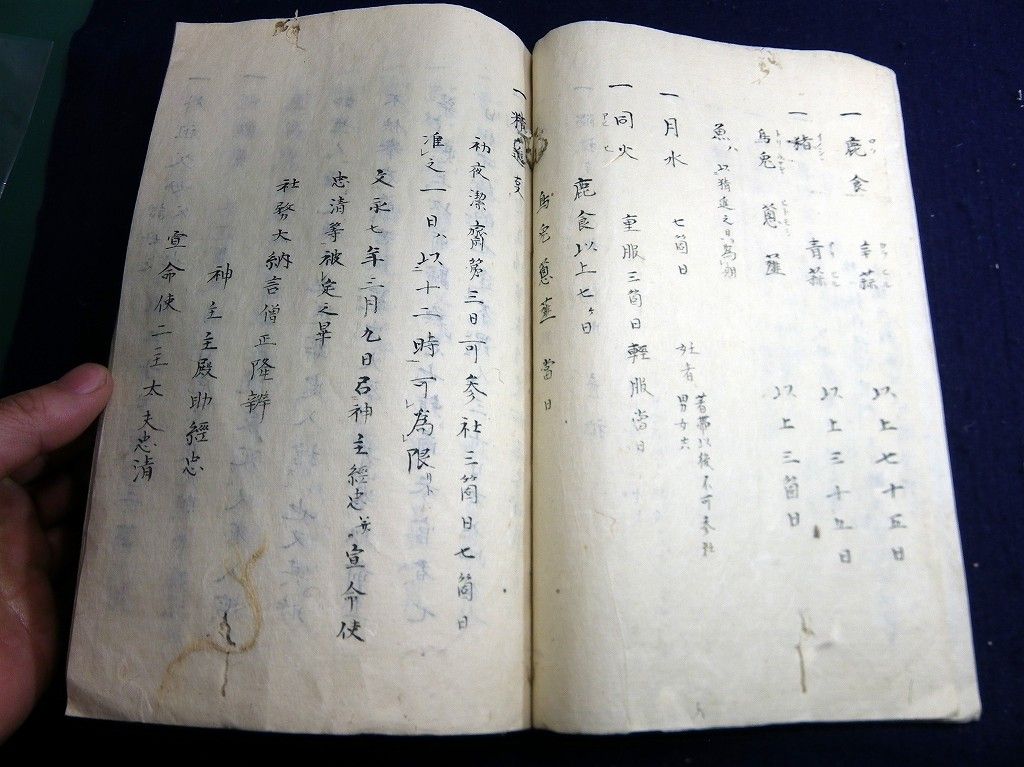 一鹿食 辛蒜 以上七十五日
一猪 青蒜 以上三十五日
烏兎 葱 薤 以上三箇日
魚ハ以精進之日為期
一月水 七箇日 妊者 男女共 著帯以後不可参社
一同火 重服三箇日軽服当日
鹿食以上七ケ日
烏兎葱薤 當日
一精進
初夜潔齋第三日可参社三箇日七箇日
准之一日ハ以十二時可為限
文永七年三月九日召神主經忠并宣命使
忠清等被定之畢
社務大納言僧正隆辨
神主主殿助經忠
宣命使二王太夫忠清